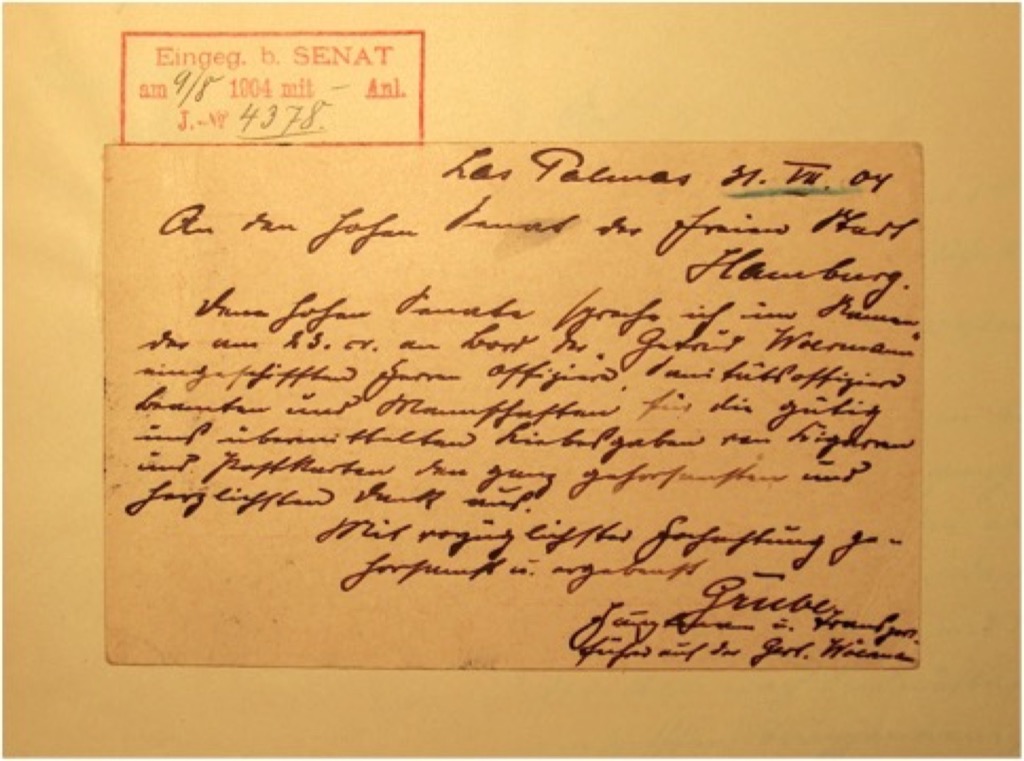 Eingeg. b. SENAT
am 9/8 1904 mit - Anl.
J.-№ 4378.
Las Palmas 31. VII. 04
An den hohen Senat der freien Stadt
Hamburg.
Dem hohen Senate spreche ich im Namen
der am 23. cr. an Bord der "Gertrud Woermann"
eingeschifften Herren Offiziere, Sanitätsoffiziere
Beamten und Mannschaften für die gütig
uns übermittelten Liebesgaben von Zigarren
und Postkarten den ganz gehorsamsten und
herzlichsten Dank aus.
Mit vorzüglichster Hochachtung ge-
horsamst u. ergebenst
Grube,
Hauptmann u. Transport-
führer auf der Gert. Woermann